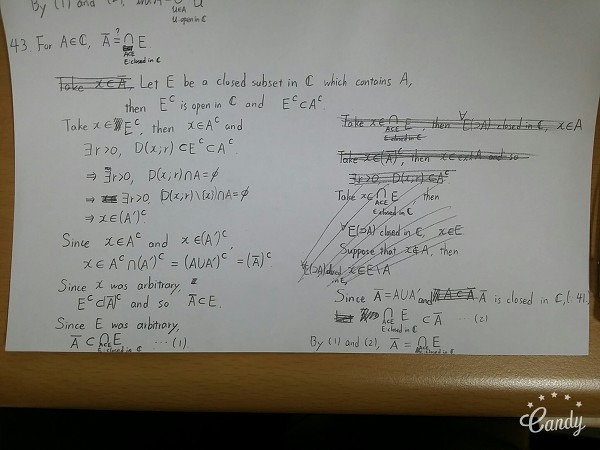 By (1) and (2),
U∈A
U open in ℂ
43. For A∈ℂ, Ā ≟ ∩ E.
A⊂E
E:closed in ℂ
Take x∈Ā. Let E be a closed subset in ℂ which contains A,
then Eᶜ is open in ℂ and Eᶜ⊂Aᶜ.
Take x∈Eᶜ, then x∈Aᶜ and
∃r>0, D(x;r)⊂Eᶜ⊂Aᶜ.
⇒ ∃r>0, D(x;r)∩A=∅
⇒ ∃r>0, (D(x;r)\{x})∩A=∅
⇒ x∈(A')ᶜ
Since x∈Aᶜ and x∈(A')ᶜ,
x∈Aᶜ∩(A')ᶜ = (A∪A')ᶜ = (Ā)ᶜ
Since x was arbitrary,
Eᶜ⊂(Ā)ᶜ and so Ā⊂E.
Since E was arbitrary,
Ā ⊂ ∩ E ... (1).
A⊂E
E:closed in ℂ
Take x∈∩ E, then ∀E(⊃A) closed in ℂ, x∈A
A⊂E
E:closed in ℂ
Take x∈(Ā)ᶜ, then x∈ext A and so
∃r>0, D(x;r)⊂Aᶜ
Take x∈∩ E, then
A⊂E
E:closed in ℂ
∀E(⊃A) closed in ℂ, x∈E
Suppose that x∉A, then
∀E(⊃A) closed in ℂ, x∈E\A
Since Ā=A∪A', and Ā is closed in ℂ, (∵41.)
∩ E ⊂Ā ... (2)
A⊂E
E:closed in ℂ
By (1) and (2), Ā = ∩ E
A⊂E
E:closed in ℂ
Candy